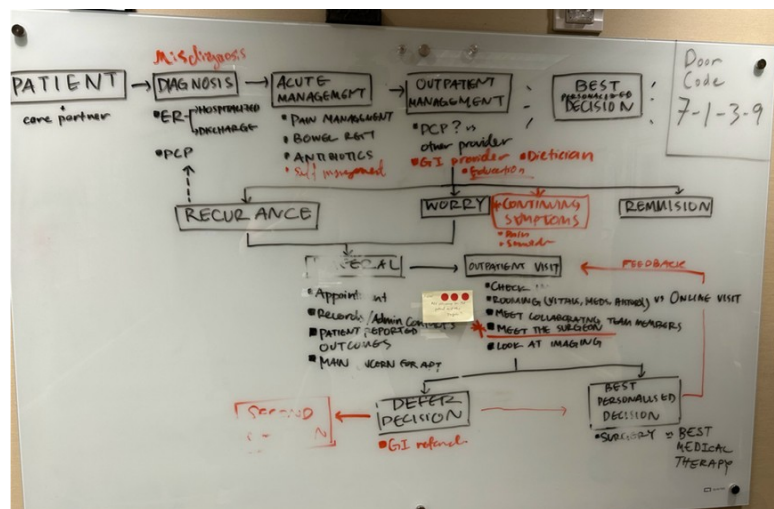 Misdiagnosis
PATIENT
care partner
DIAGNOSIS
ER
HOSPITALIZED
DISCHARGE
PCP
ACUTE
MANAGEMENT
PAIN MANAGEMENT
BOWEL REST
ANTIBIOTICS
Self management
OUTPATIENT
MANAGEMENT
PCP? vs
other provider
GI provider
Dietician
Education
BEST
PERSONALISED
DECISION
Door
Code
7-1-3-9
RECURANCE
WORRY
CONTINUING
SYMPTOMS
REMMISION
OUTPATIENT VISIT
FEEDBACK
Records/Admin
PATIENT REPORTED
OUTCOMES
MAIN
FOR APT
CHECK
ROOMING (VITALS, MEDS,
vs ONLINE VISIT
MEET COLLABORATING TEAM MEMBERS
MEET THE SURGEON
LOOK AT IMAGING
DEFER
DECISION
GI referral
BEST
PERSONALISED
DECISION
SURGERY vs BEST
MEDICAL
THERAPY